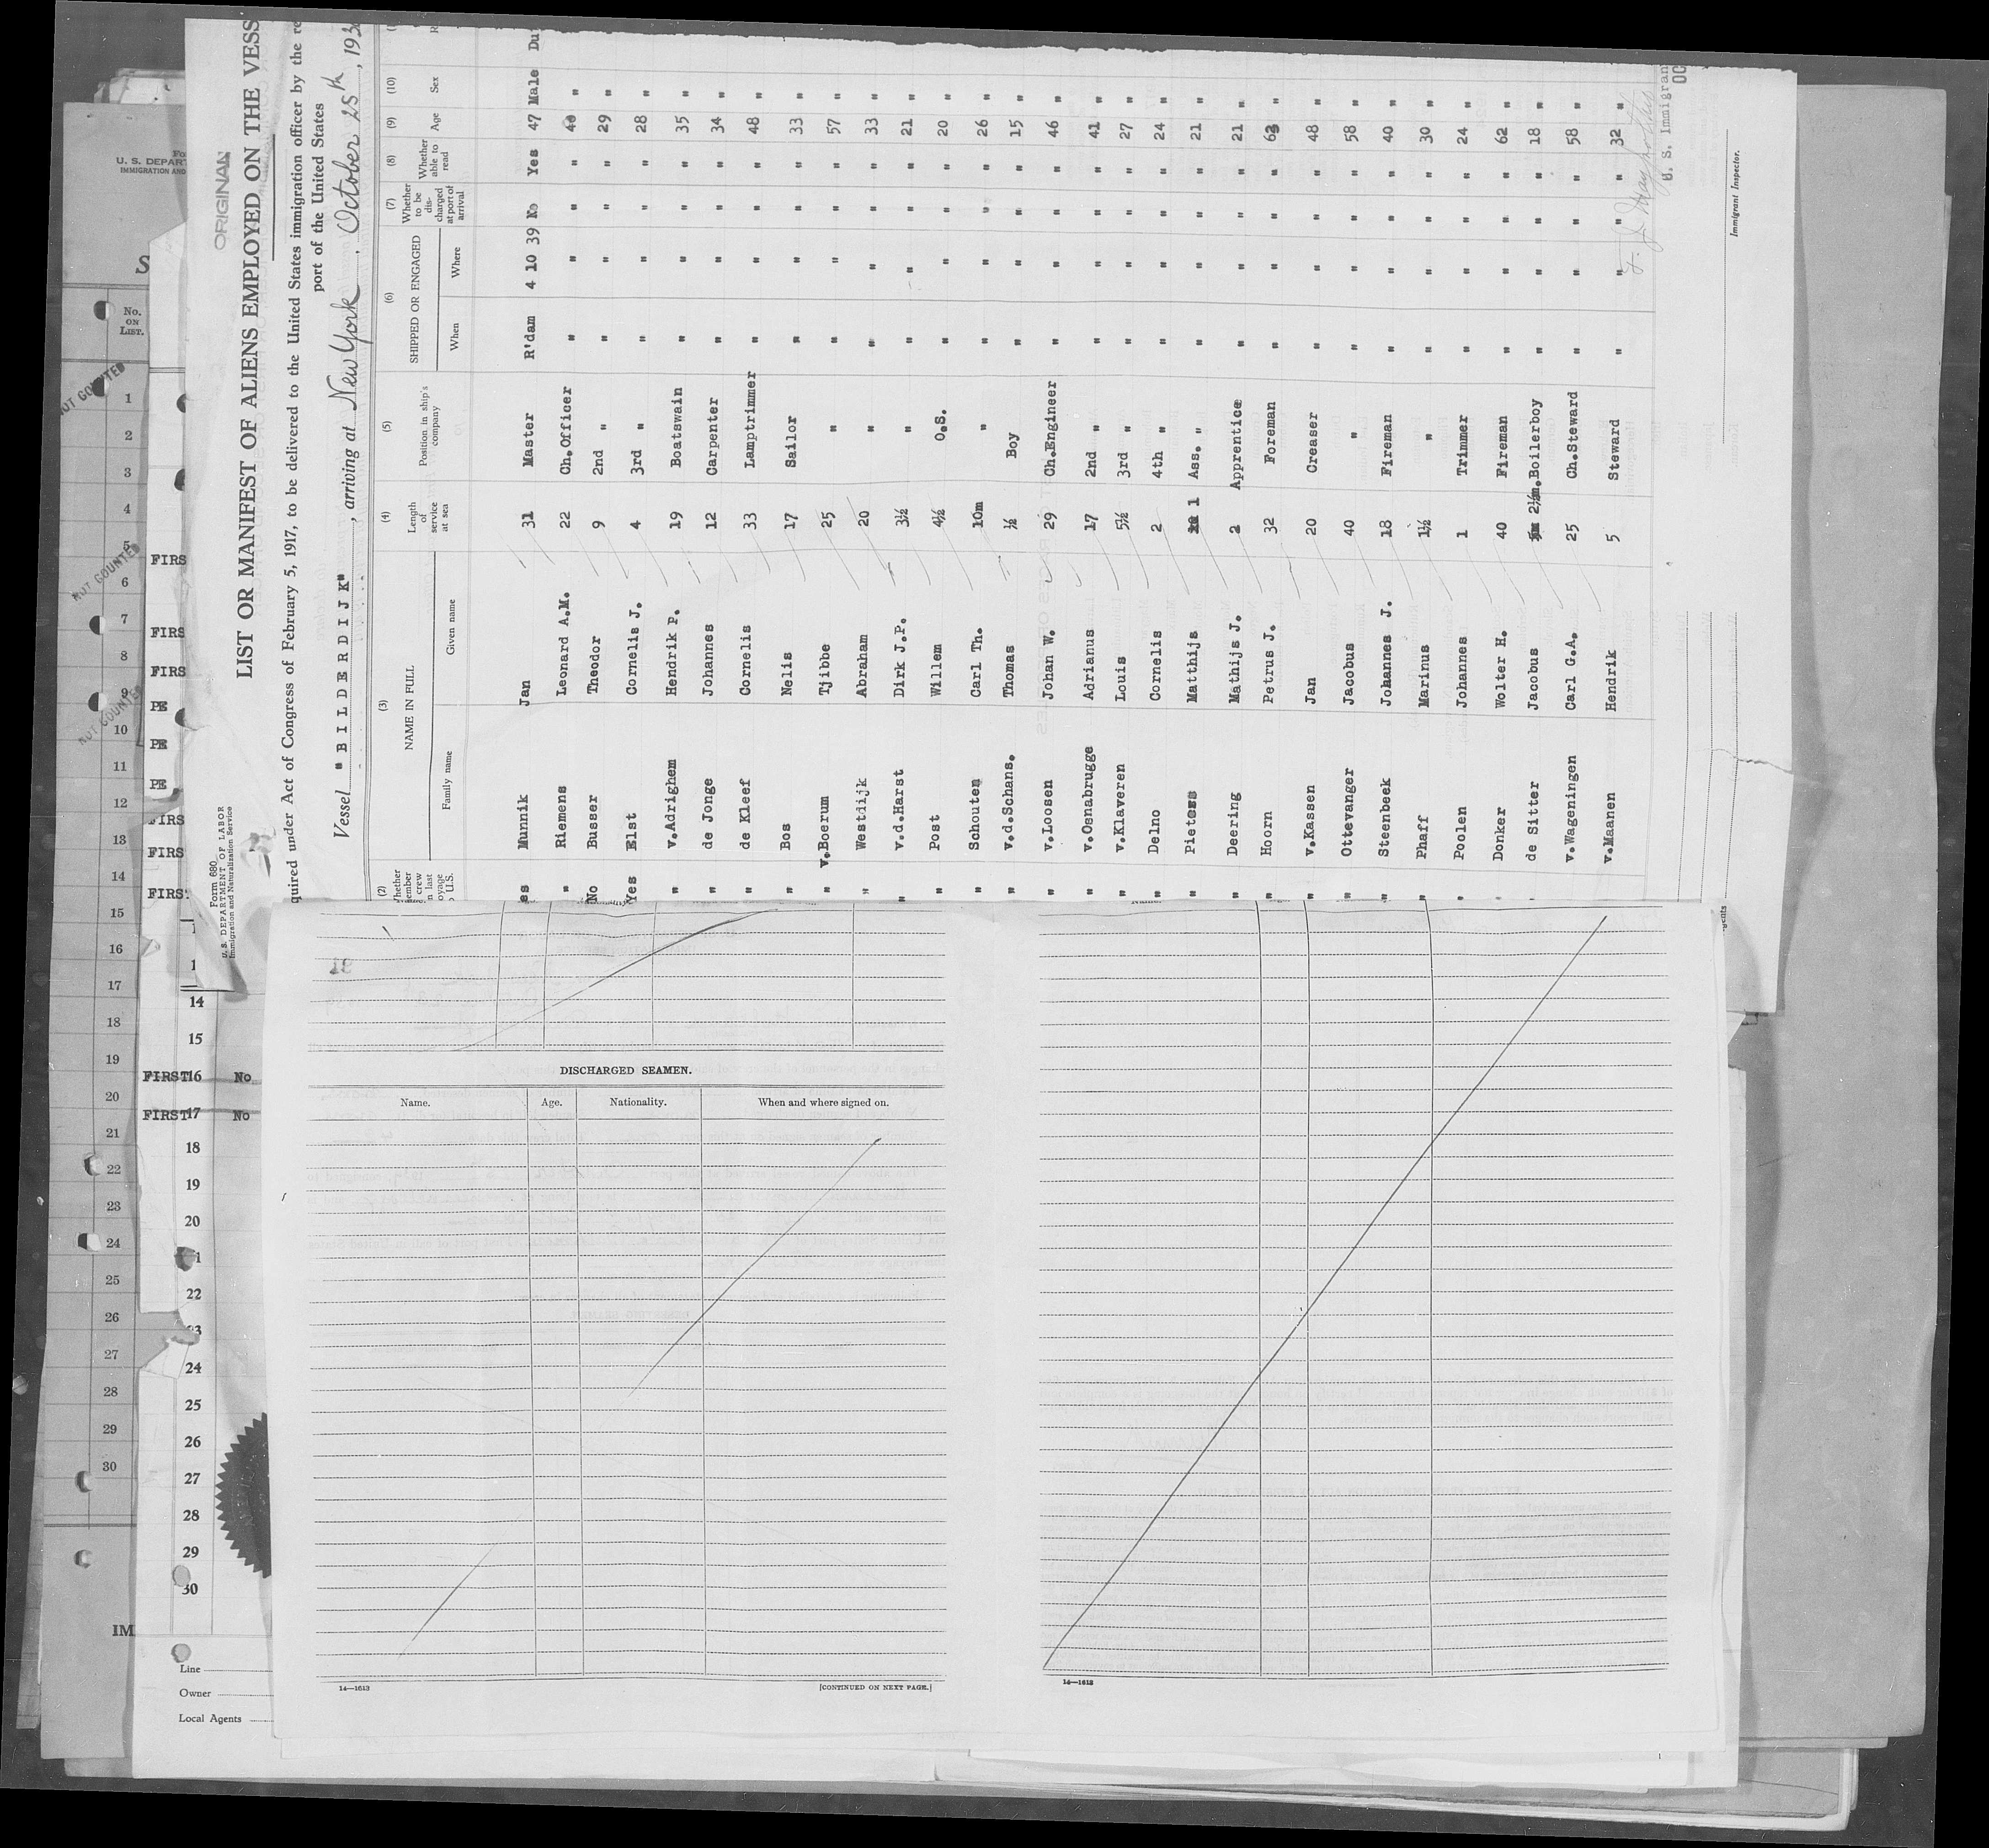 ORIGINAL
Form 680
U. S. DEPARTMENT OF LABOR
Immigration and Naturalization Service
LIST OR MANIFEST OF ALIENS EMPLOYED ON THE VESS
quired under Act of Congress of February 5, 1917, to be delivered to the United States immigration officer by the re
port of the United States
Vessel "BILDERDIJK", arriving at New York, October 25th, 193
(2) (3) (4) (5) (6) (7) (8) (9) (10)
NAME IN FULL
Family name Given name
Length of service at sea
Position in ship's company
SHIPPED OR ENGAGED
When Where
Whether to be discharged at port of arrival
Whether able to read
Age
Sex
es Munnik Jan 31 Master R'dam 4 10 39 No Yes 47 Male Du
" Riemens Leonard A.M. 22 Ch.Officer " " " " 40 "
No Busser Theodor 9 2nd " " " " " 29 "
Yes Elst Cornelis J. 4 3rd " " " " " 28 "
" v.Adrighem Hendrik P. 19 Boatswain " " " " 35 "
" de Jonge Johannes 12 Carpenter " " " " 34 "
" de Kleef Cornelis 33 Lamptrimmer " " " " 48 "
" Bos Nelis 17 Sailor " " " " 33 "
" v.Boerum Tjibbe 25 " " " " " 57 "
" Westdijk Abraham 20 " " " " " 33 "
" v.d.Harst Dirk J.P. 3½ " " " " " 21 "
" Post Willem 4½ O.S. " " " " 20 "
" Schouten Carl Th. 10m " " " " " 26 "
" v.d.Schans. Thomas ½ Boy " " " " 15 "
" v.Loosen Johan W. 29 Ch.Engineer " " " " 46 "
" v.Osnabrugge Adrianus 17 2nd " " " " " 41 "
" v.Klaveren Louis 5½ 3rd " " " " " 27 "
" Delno Cornelis 2 4th " " " " " 24 "
" Matthijs 1 Ass. " " " " " 21 "
" Deering Mathijs J. 2 Apprentice " " " " 21 "
" Hoorn Petrus J. 32 Foreman " " " " "
" v.Kassen Jan 20 Creaser " " " " 48 "
" Ottevanger Jacobus 40 " " " " " 58 "
" Steenbeek Johannes J. 18 Fireman " " " " 40 "
" Phaff Marinus 1½ " " " " " 30 "
" Poolen Johannes 1 Trimmer " " " " 24 "
Donker Wolter H. 40 Fireman " " " " 62 "
de Sitter Jacobus 2½m. Boilerboy " " " " 18 "
v.Wageningen Carl G.A. 25 Ch.Steward " " " " 58 "
v.Maanen Hendrik 5 Steward " " " " 32 "
U. S. Immigran
OC
Immigrant Inspector.
Fo
U. S. DEPART
IMMIGRATION AND
S
No. ON LIST.
NOT COUNTED
NOT COUNTED
NOT COUNTED
1
2
3
4
5
6
7
8
9
10
11
12
13
14
15
16
17
18
19
20
21
22
23
24
25
26
27
28
29
30
IM
FIRS
FIRS
FIRS
PE
PE
PE
FIRS
FIRS
FIRS
14
15
FIRST 16 No
FIRST 17 No
18
19
20
22
24
25
26
27
28
29
30
Line
Owner
Local Agents
DISCHARGED SEAMEN.
Name. Age. Nationality. When and where signed on.
14—1613
[CONTINUED ON NEXT PAGE.]
14—1613